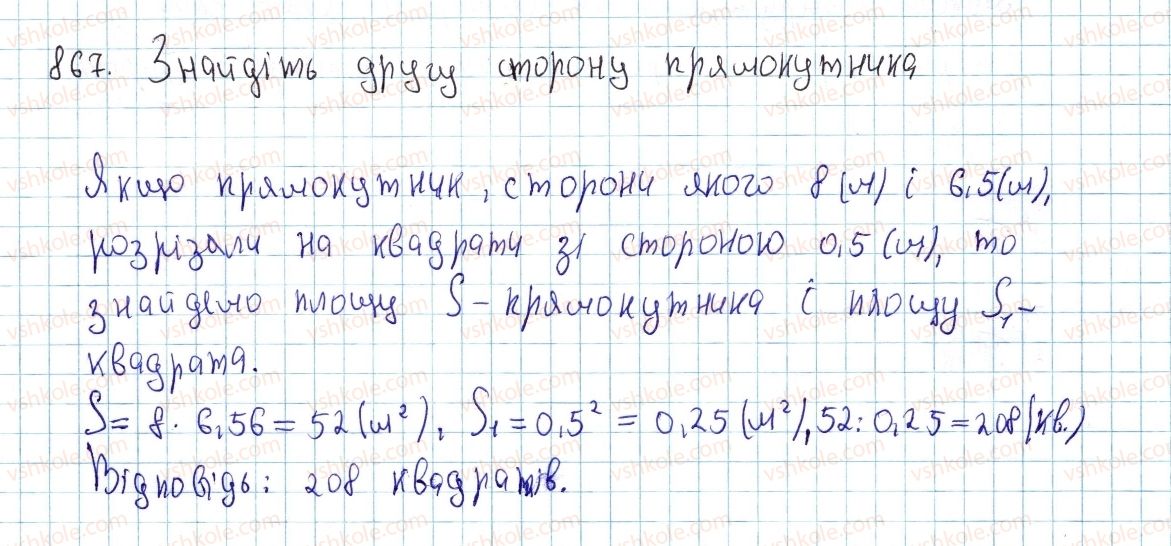 867. Знайдіть другу сторону прямокутника
Якщо прямокутник, сторони якого 8 (м) і 6,5 (м),
розрізали на квадрати зі стороною 0,5 (м), то
знайдемо площу S - прямокутника і площу S₁ -
квадрата.
S = 8 · 6,56 = 52 (м²), S₁ = 0,5² = 0,25 (м²), 52 : 0,25 = 208 (кв.)
Відповідь: 208 квадратів.